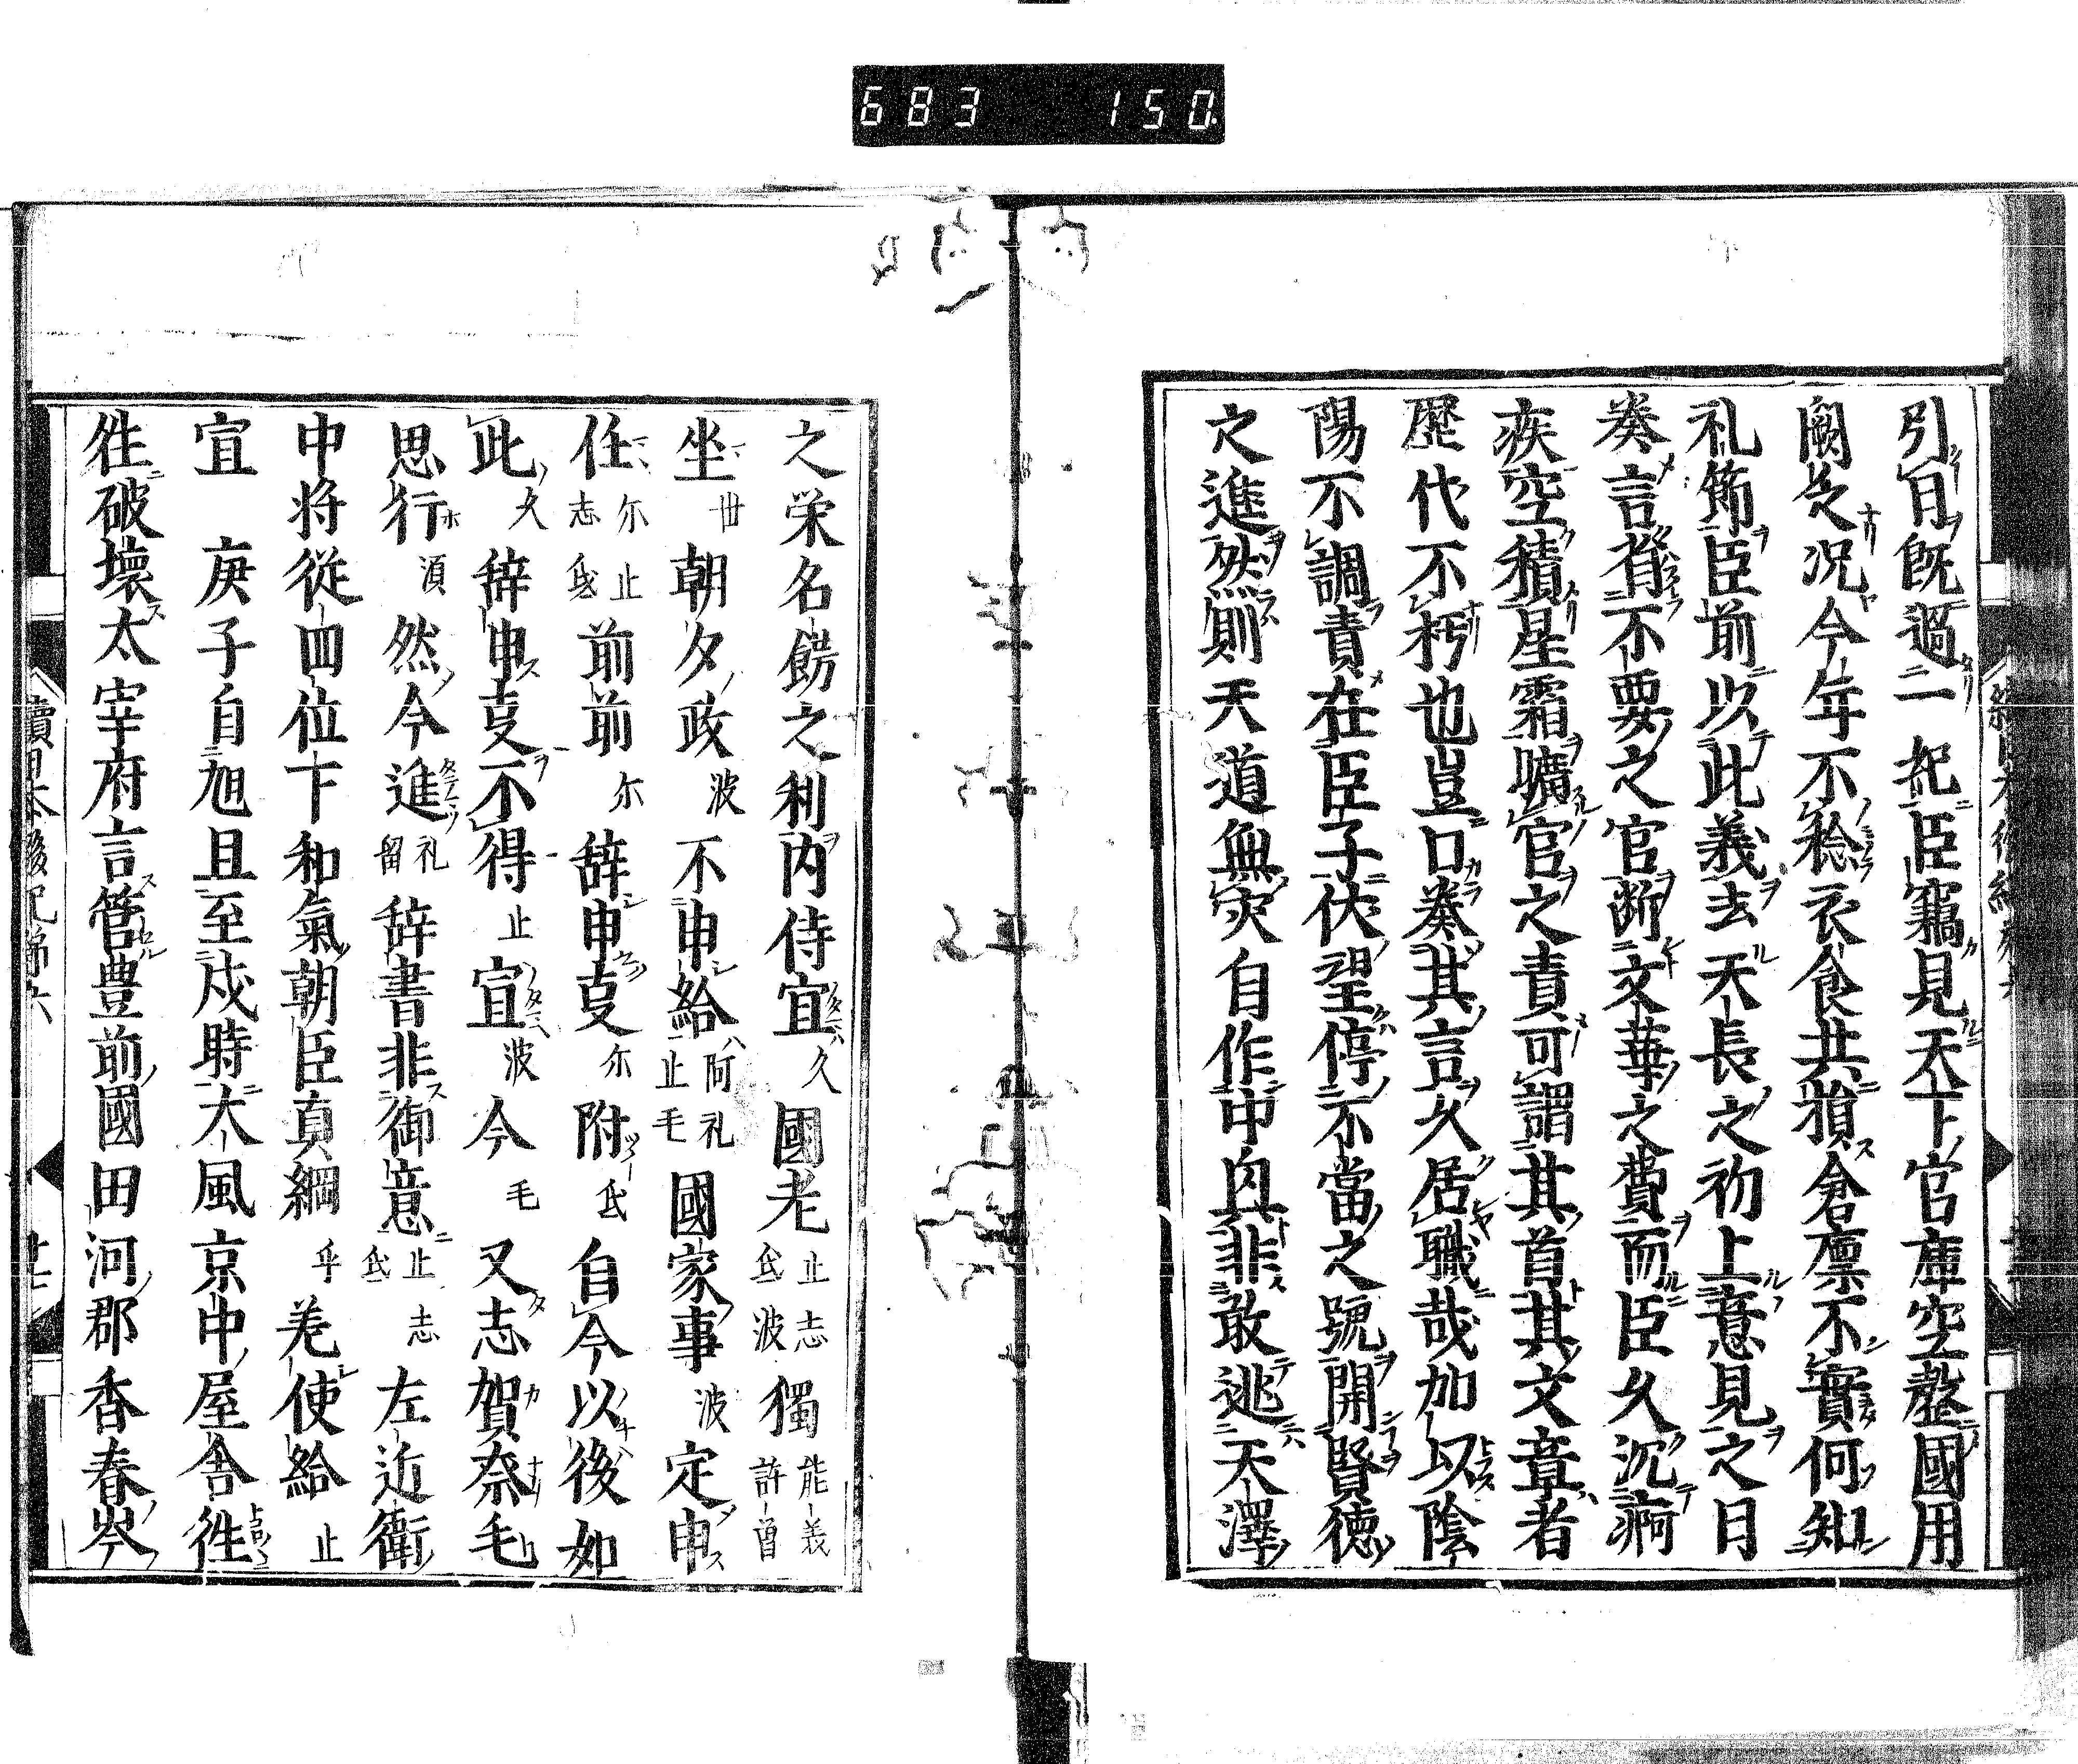 683 150
引月既過二紀臣竊見天下官庫空盡國用
闕乏況今年不稔衣食共損倉廩不實何知
礼節臣前以此義去天長之初上意見之日
奏言省不要之官断文華之費而臣久沉痾
疾空積星霜曠官之責可謂其首其文章者
歴代不朽也豈口奏其言久居職哉加以陰
陽不調責在臣子伏望停不當之號開賢徳
之進然則天道無灾自作中臭非敢逃天澤
之栄名餝之利内侍宣久國老止志弖波獨能義許曽
坐世朝夕政波不申給阿礼止毛國家事波定申
任尓止志弖前前尓辞申㕝尓附弖自今以後如
此久辞申㕝不得止宣波今毛又志賀奈毛
思行須然今進礼留辞書非御意止志弖左近衛
中将從四位下和氣朝臣真綱乎差使給止
宣　庚子自旭且至戌時大風京中屋舎徃
徃破壊太宰府言管豊前國田河郡香春岑
續日本後紀第六 廿七